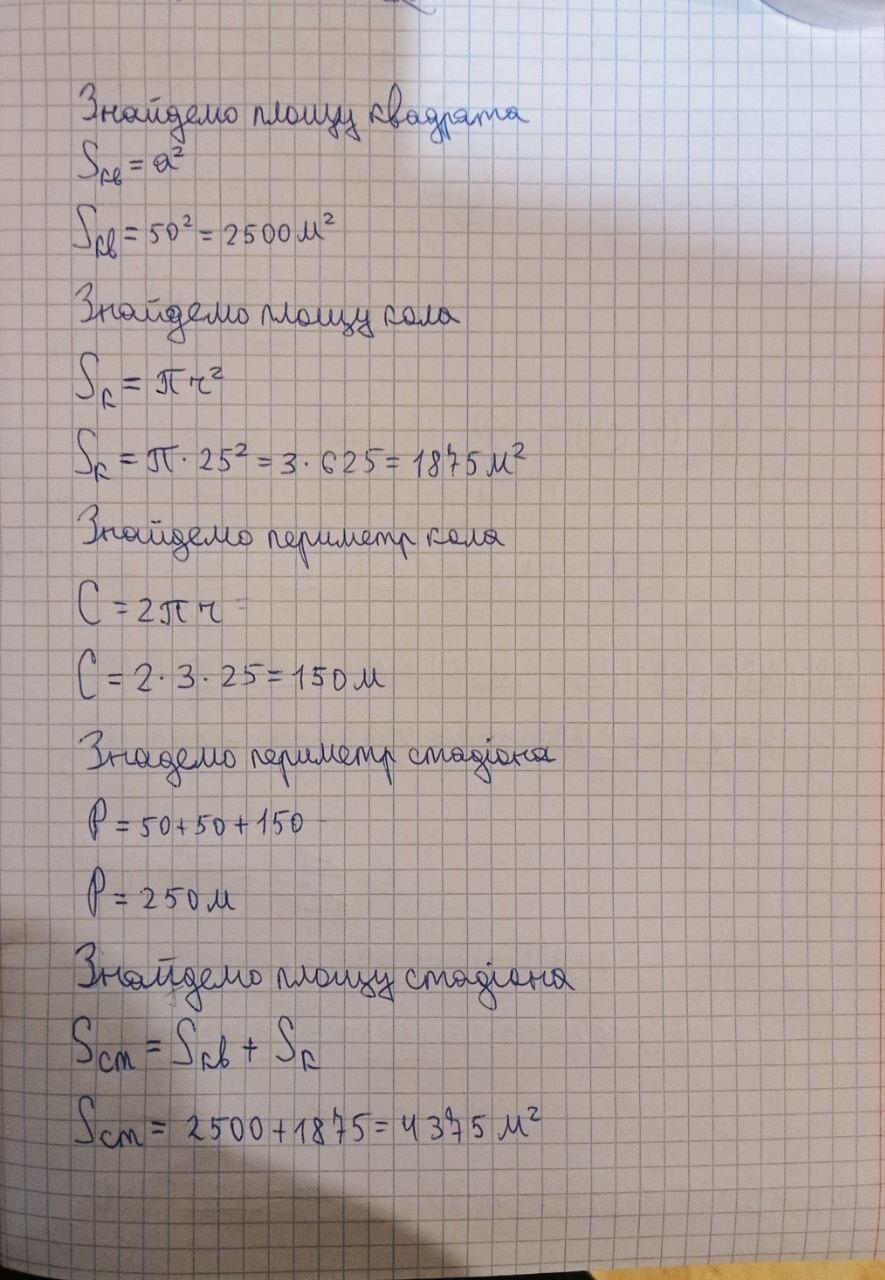 Знайдемо площу квадрата
Sкв = a²
Sкв = 50² = 2500 м²
Знайдемо площу кола
Sк = πr²
Sк = π · 25² = 3 · 625 = 1875 м²
Знайдемо периметр кола
C = 2πr
C = 2 · 3 · 25 = 150 м
Знадемо периметр стадіона
P = 50 + 50 + 150
P = 250 м
Знайдемо площу стадіона
Sст = Sкв + Sк
Sст = 2500 + 1875 = 4375 м²